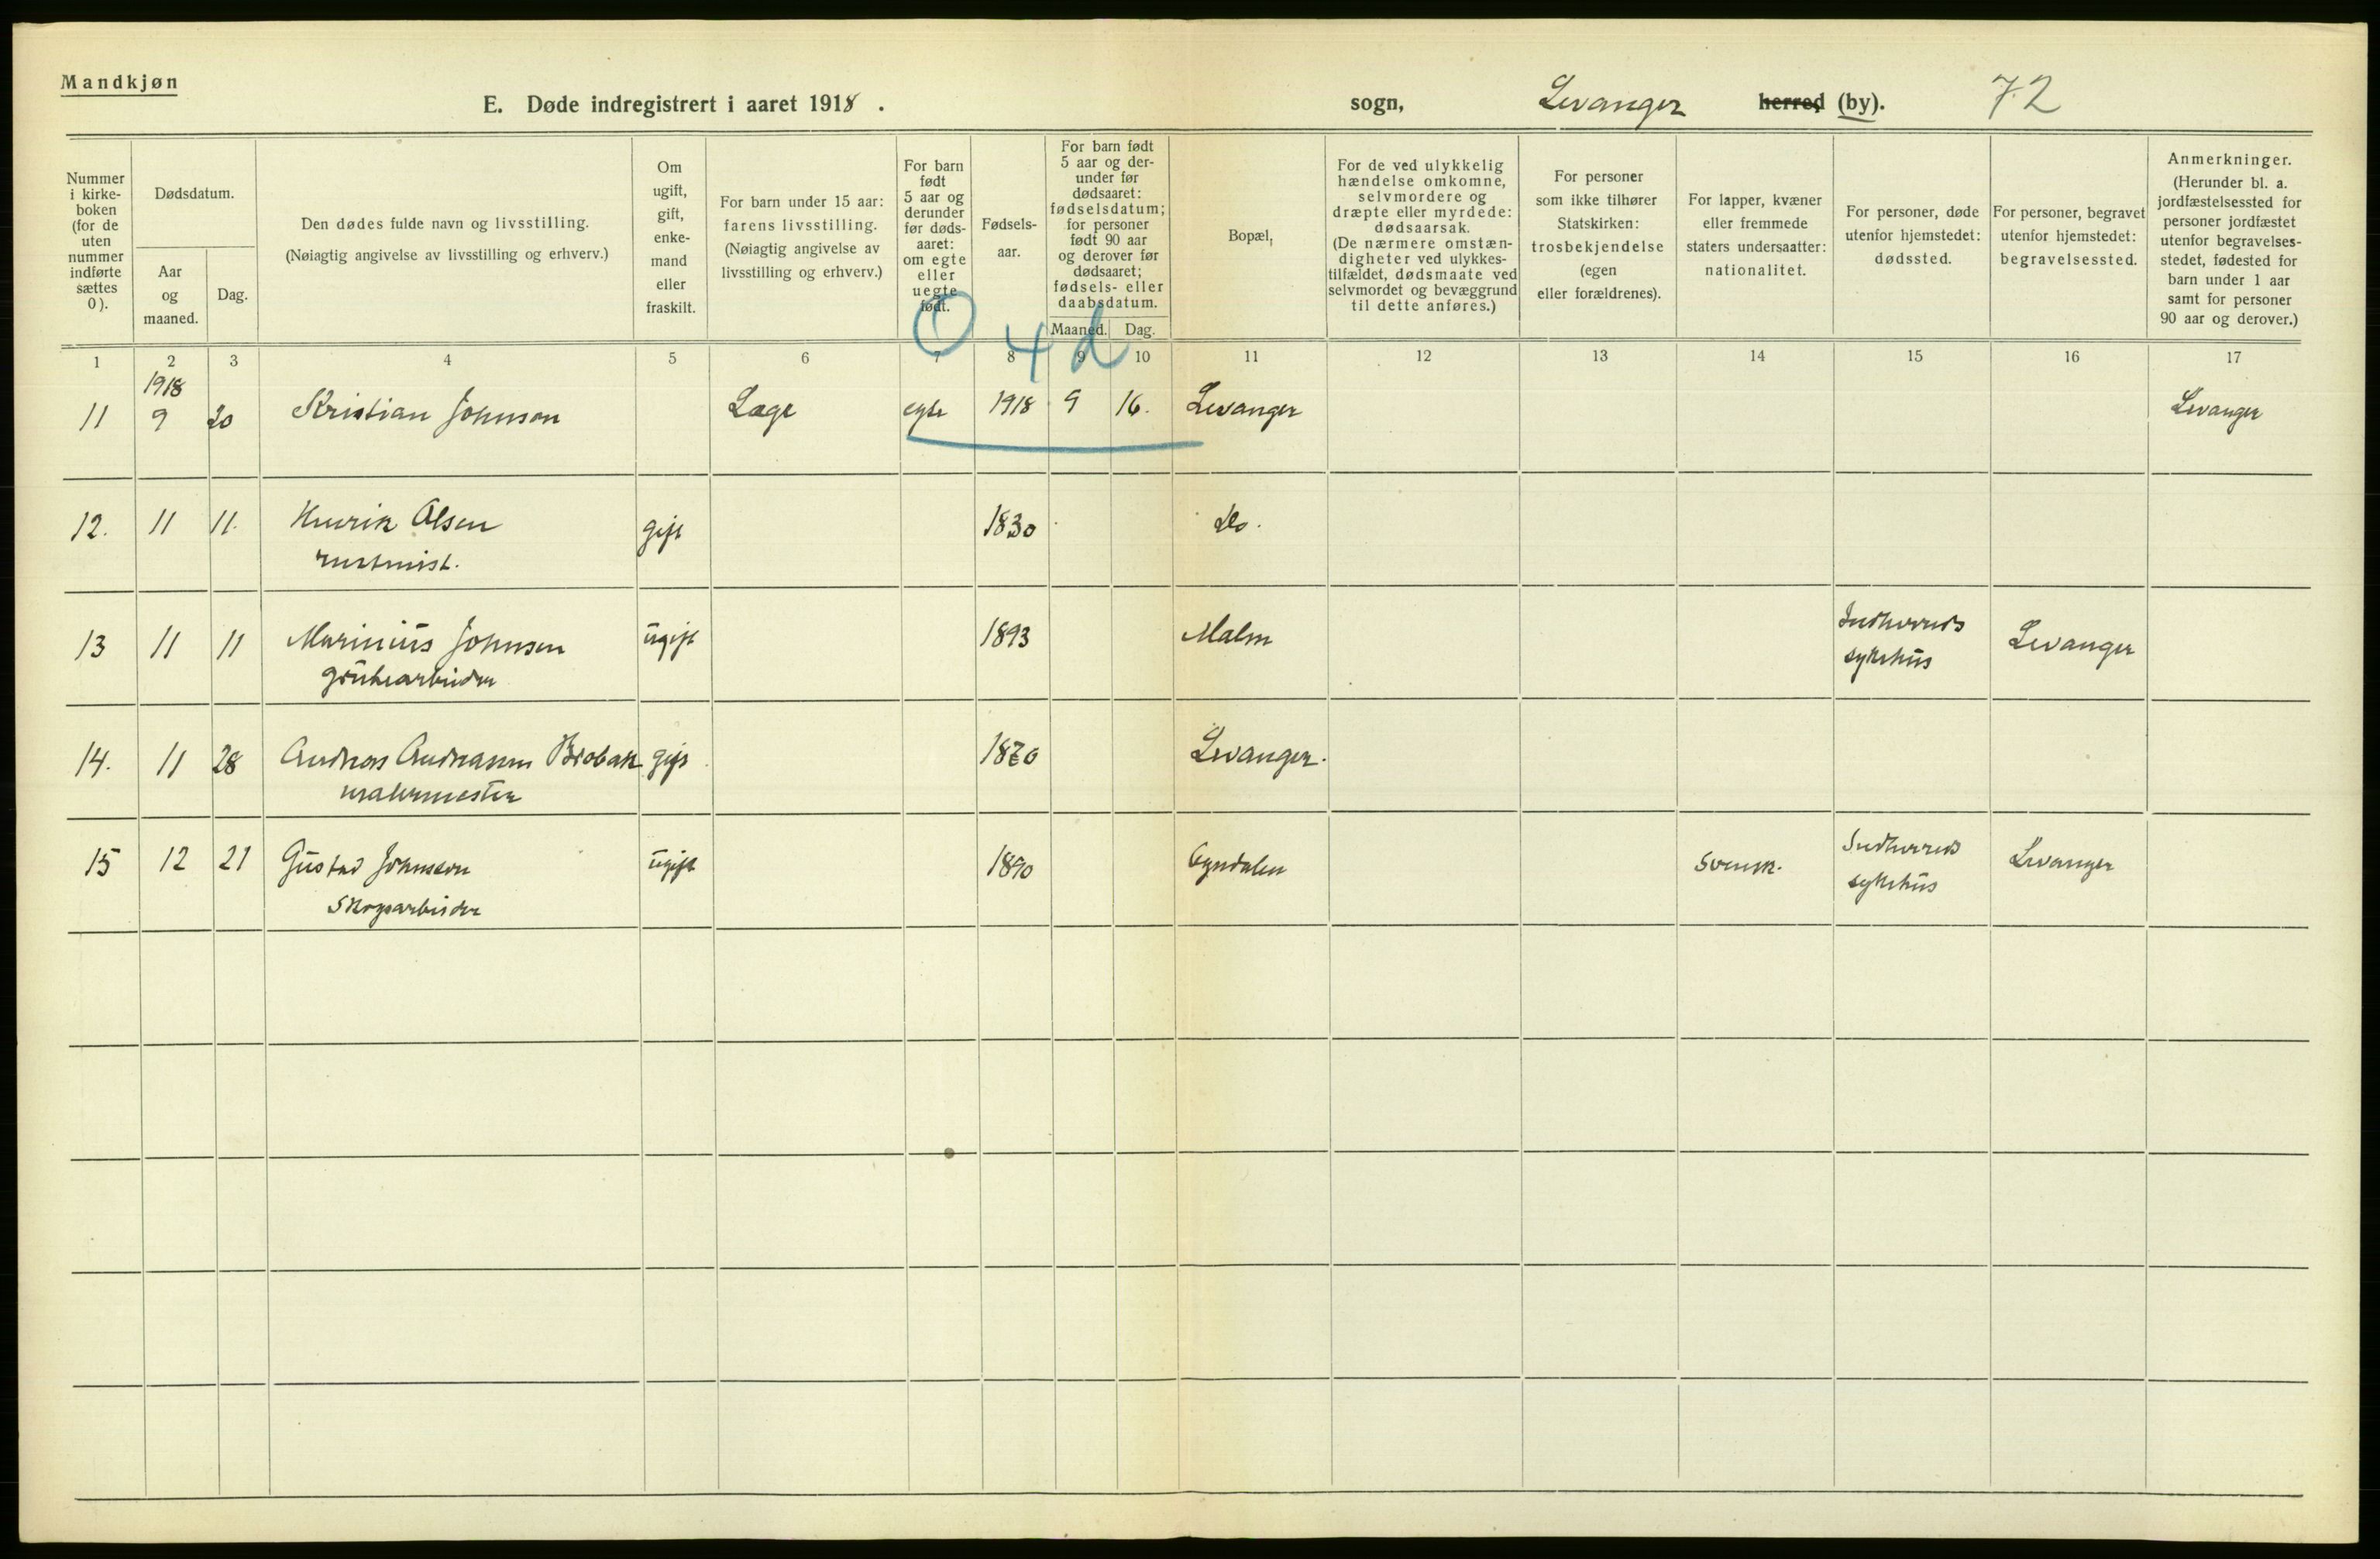 Mandkjøn
E. Døde indregistrert i aaret 1918 . sogn, Levanger herred (by). 72
Nummer i kirke-boken (for de uten nummer indførte sættes 0).
Dødsdatum.
Aar og maaned.
Dag.
Den dødes fulde navn og livsstilling.
(Nøiagtig angivelse av livsstilling og erhverv.)
Om ugift, gift, enke-mand eller fraskilt.
For barn under 15 aar: farens livsstilling. (Nøiagtig angivelse av livsstilling og erhverv.)
For barn født 5 aar og derunder før døds-aaret: om egte eller uegte født.
Fødsels-aar.
For barn født 5 aar og der-under før dødsaaret: fødselsdatum; for personer født 90 aar og derover før dødsaaret; fødsels- eller daabsdatum.
Maaned. Dag.
Bopæl,
For de ved ulykkelig hændelse omkomne, selvmordere og dræpte eller myrdede: dødsaarsak. (De nærmere omstæn-digheter ved ulykkes-tilfældet, dødsmaate ved selvmordet og bevæggrund til dette anføres.)
For personer som ikke tilhører Statskirken: trosbekjendelse (egen eller forældrenes).
For lapper, kvæner eller fremmede staters undersaatter: nationalitet.
For personer, døde utenfor hjemstedet: dødssted.
For personer, begravet utenfor hjemstedet: begravelsessted.
Anmerkninger. (Herunder bl. a. jordfæstelsessted for personer jordfæstet utenfor begravelses-stedet, fødested for barn under 1 aar samt for personer 90 aar og derover.)
0 4 d
1 2 3 4 5 6 7 8 9 10 11 12 13 14 15 16 17
1918
11 9 20 Kristian Johnson Læge egte 1918 9 16. Levanger Levanger
12. 11 11. Henrik Olsen gift 1830 Do.
rentenist.
13 11 11 Marinius Johnsen ugift 1893 Malm Indherreds sykehus Levanger
grubearbeider
14. 11 28 Andreas Andreasen Brobak gift 1870 Levanger.
malermester
15 12 21 Gustav Johnsson ugift 1890 Ogndalen svensk. Indherreds sykehus Levanger
skogsarbeider